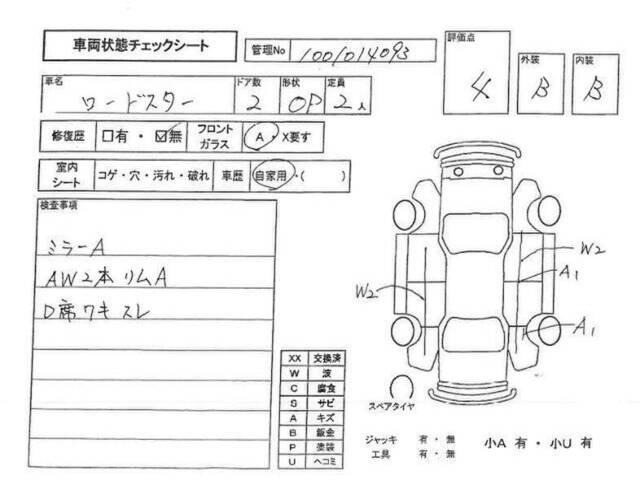 車両状態チェックシート
管理No 100/014093
評価点 4
外装 B
内装 B
車名 ロードスター
ドア数 2
形状 OP
定員 2人
修復歴 □有・☑無
フロントガラス A・X要す
室内シート コゲ・穴・汚れ・破れ
車歴 自家用・( )
検査事項
ミラーA
AW2本リムA
D席ワキスレ
W2
A1
W2
A1
XX 交換済
W 波
C 腐食
S サビ
A キズ
B 鈑金
P 塗装
U ヘコミ
スペアタイヤ
ジャッキ 有・無
工具 有・無
小A 有・小U 有